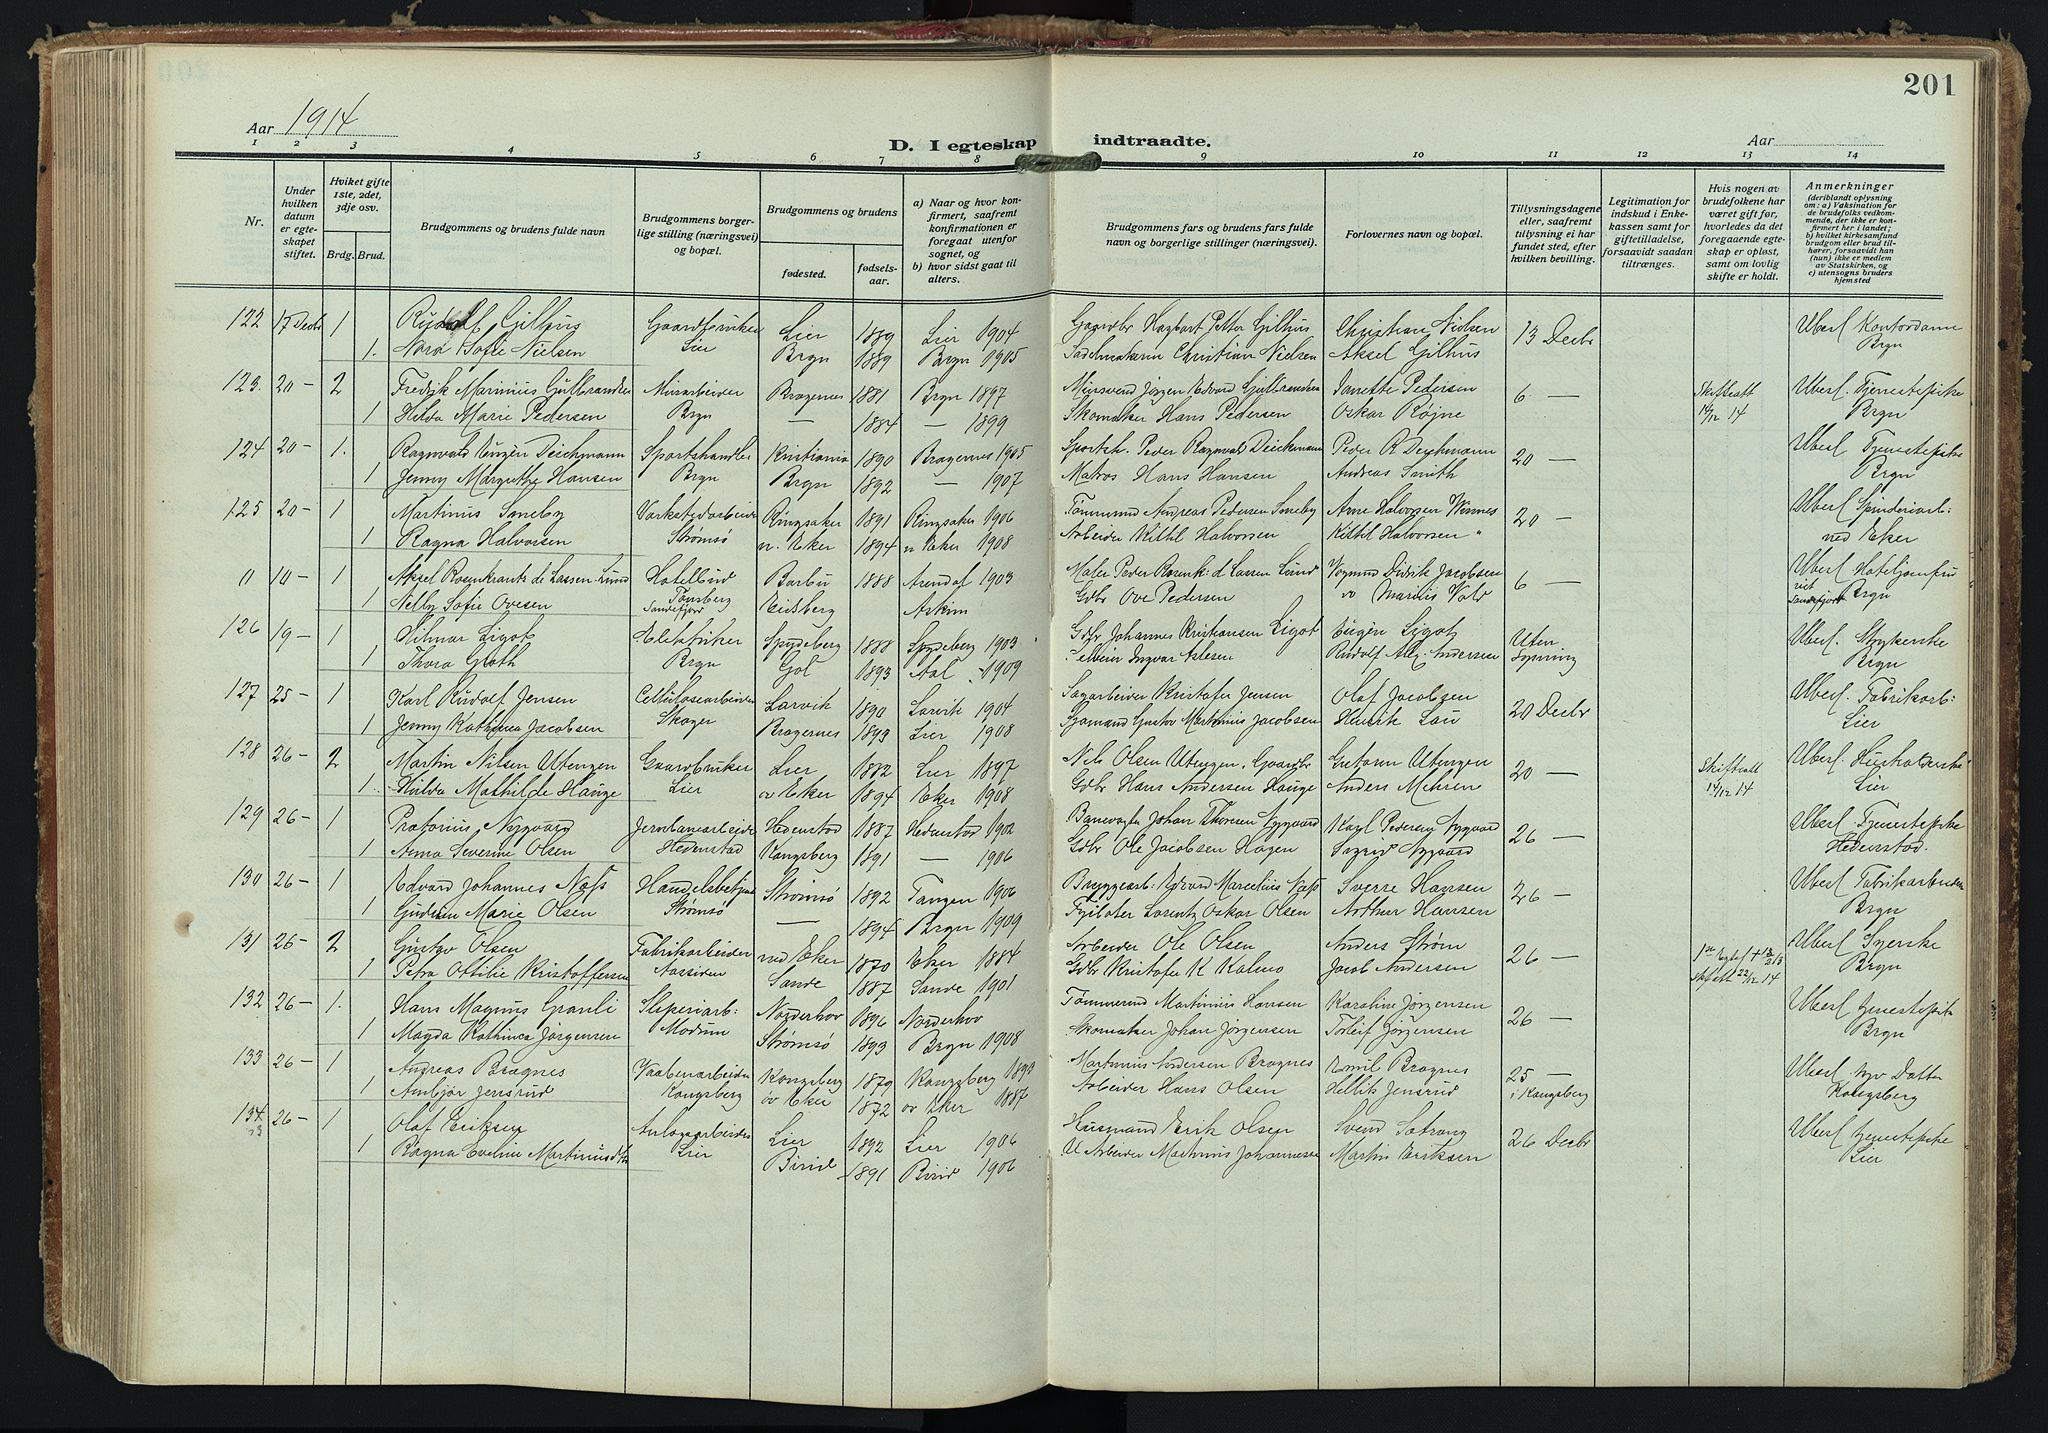 201
Aar 1914
D. I egteskap indtraadte.
Aar
1 2 3 4 5 6 7 8 9 10 11 12 13 14
Nr.
Under hvilken datum er egteskapet stiftet.
Hviket gifte 1ste, 2det, 3dje osv.
Brdg. Brud.
Brudgommens og brudens fulde navn
Brudgommens borgerlige stilling (næringsvei) og bopæl.
Brudgommens og brudens
fødested.
fødselsaar.
a) Naar og hvor konfirmert, saafremt konfirmationen er foregaat utenfor sognet, og
b) hvor sidst gaat til alters.
Brudgommens fars og brudens fars fulde navn og borgerlige stillinger (næringsvei).
Forlovernes navn og bopæl.
Tillysningsdagene eller, saafremt tillysning ei har fundet sted, efter hvilken bevilling.
Legitimation for indskud i Enkekassen samt for giftetilladelse, forsaavidt saadan tiltrænges.
Hvis nogen av brudefolkene har været gift før, hvorledes da det foregaaende egteskap er opløst, samt om lovlig skifte er holdt.
Anmerkninger (deriblandt oplysning om: a) Vaksination for de brudefolks vedkommende, der ikke er konfirmert her i landet; b) hvilket kirkesamfund brudgom eller brud tilhører, forsaavidt han (hun) ikke er medlem av Statskirken, og c) utensogns bruders hjemsted
122 17 Decbr 1 Rudolf Gilhus Gaardbruker Lier 1889 Lier 1904 Gaardbr Hagbart Petter Gilhus Christian Nielsen 13 Decbr Uberl Kontordame
1. Nora Sofie Nielsen Lier Brgn 1889 Brgn 1905 Sadelmakerm Christian Nielsen Aksel Gilhus Brgn
123. 20 – 2 Fredrik Marinius Gulbrandsen Murarbeider Bragernes 1881 Brgn 1897 Mursvend Jörgen Edvard Gulbrandsen Janette Pedersen 6 – Skifteatt 14/12 14 Uberl. Tjenestepike
1 Hilda Marie Pedersen Brgn – 1884 – 1899 Skomaker Hans Pedersen Oskar Röine Brgn
124 20 – 1. Ragnvald Eugen Deichmann Sportshandler Kristiania 1890 Bragernes 1905 Sportsh. Peder Ragnvald Deichmann Peder R Deichmann 20 – Uberl Tjenestepike
1 Jenny Margrethe Hansen Brgn Brgn 1892 – 1907 Matros Hans Hansen Andreas Smith Brgn
125 20 – 1 Martinus Soneby Verkstedarbeider Ringsaker 1891 Ringsaker 1906 Tömmermd Andreas Pedersen Soneby Arne Halvorsen 20 – Uberl Spinderiarb:
1 Ragna Halvorsen Strømsø n. Eker 1894 n Eker 1908 Arbeider Kittil Halvorsen Kittil Halvorsen " ned Eker
0 10 – 1 Aksel Rosenkrantz de Lassen-Lund Hotelbud Barbu 1888 Arendal 1903 Maler Peder Rosenk: d Lassen Lund Vognmd Didrik Jacobsen 6 – Uberl Hoteljomfru
1 Nelly Sofie Ovesen Tønsberg Sandefjord Eidsberg Askim Gdbr Ove Pedersen Brgn
126 19 – 1 Hilmar Ligot Elektriker Spydeberg 1888 Spydeberg 1903 Gdbr Johannes Kristiansen Ligot Eugén Ligot Uten lysning Uberl. Strykerske
1 Thora Groth Brgn Gol 1893 Aal – 1909 Rudolf Alex. Andersen Brgn
127 25 – 1 Karl Rudolf Jensen Cellulosearbeider Larvik 1890 Larvik 1904 Sagarbeider Kristofer Jensen Olaf Jacobsen 20 Decbr Uberl. Fabrikarb:
1 Jenny Kathinca Jacobsen Skoger Bragernes 1893 Lier 1908 Sjømand Gustav Martinius Jacobsen Henrik Lau Lier
128 26 – 2 Martin Nilsen Utengen Gaardbruker Lier 1882 Lier 1897 Nils Olsen Utengen, Gaardbr Gustava Utengen 20 – Skifteatt 14/12 14 Uberl. Husholderske
1. Hilda Mathilde Hauge Lier øv Eker 1894 Eker 1908 Gdbr Hans Andersen Hauge Anders Mehren Lier
129 26 – 1 Pretorius Nygaard Jernbanearbeider Hedenstad 1887 Hedenstad 1902 Banevogter Johan Thoresen Nygaard Karl Pedersen Nygaard 26 – Uberl Tjenestepike
1 Anna Severine Olsen Hedenstad Kongsberg 1891 – 1906 Gdbr Ole Jacobsen Hagen Sigrid Nygaard Hedenstad.
130 26 – 1 Edvard Johannes Næss Handelsbetjent Strömsö 1892 Tangen 1906 Bryggearb: Edvard Marcelius Næss Sverre Hansen 26 – Uberl Fabrikarbeider
1 Gudrun Marie Olsen Strømsø – 1894 Brgn 1909 Fyrbøter Lorentz Oskar Olsen Arthur Hansen Brgn
131 26 – 2 Gustav Olsen Fabrikarbeider ned Eker 1870 Eker 1884 Arbeider Ole Olsen Anders Strøm 26 – Uberl Syerske
1 Petra Ottilie Kristoffersen Aassiden Sande 1887 Sande 1901 Gdbr Kristofer K Kalmo Jacob Andersen skifteatt 22/12 14 Brgn
132 26 – 1. Hans Magnus Granli Sliperiarb: Norderhov 1896 Norderhov Tömmermd Martinius Hansen Karoline Jørgensen 26 – Uberl tjenestepike
1 Magda Kathinca Jørgensen Modum Strømsø 1893 Brgn 1908 Skomaker Johan Jørgensen Torleif Jørgensen Brgn
133 26 – 1 Andreas Bragnes Vaabenarbeider Kongsberg 1879 Kongsberg 1893 Martinius Andersen Bragnes Emil Bragnes 25 – i Kongsberg Uberl
1 Anbjør Jensrud Kongsberg øv Eker 1872 øv Eker 1887 Arbeider Hans Olsen Hellik Jensrud Kongsberg
134 26 – 1 Olaf Eriksen Anlægsarbeider Lier 1892 Lier 1906 Husmand Erik Olsen Svend Sætrang 26 Decbr Uberl tjenestepike
1 Ragna Eveline Martinusdtr Lier Birid 1891 Birid 1906 Arbeider Martinus Johannessen Martin Eriksen Lier